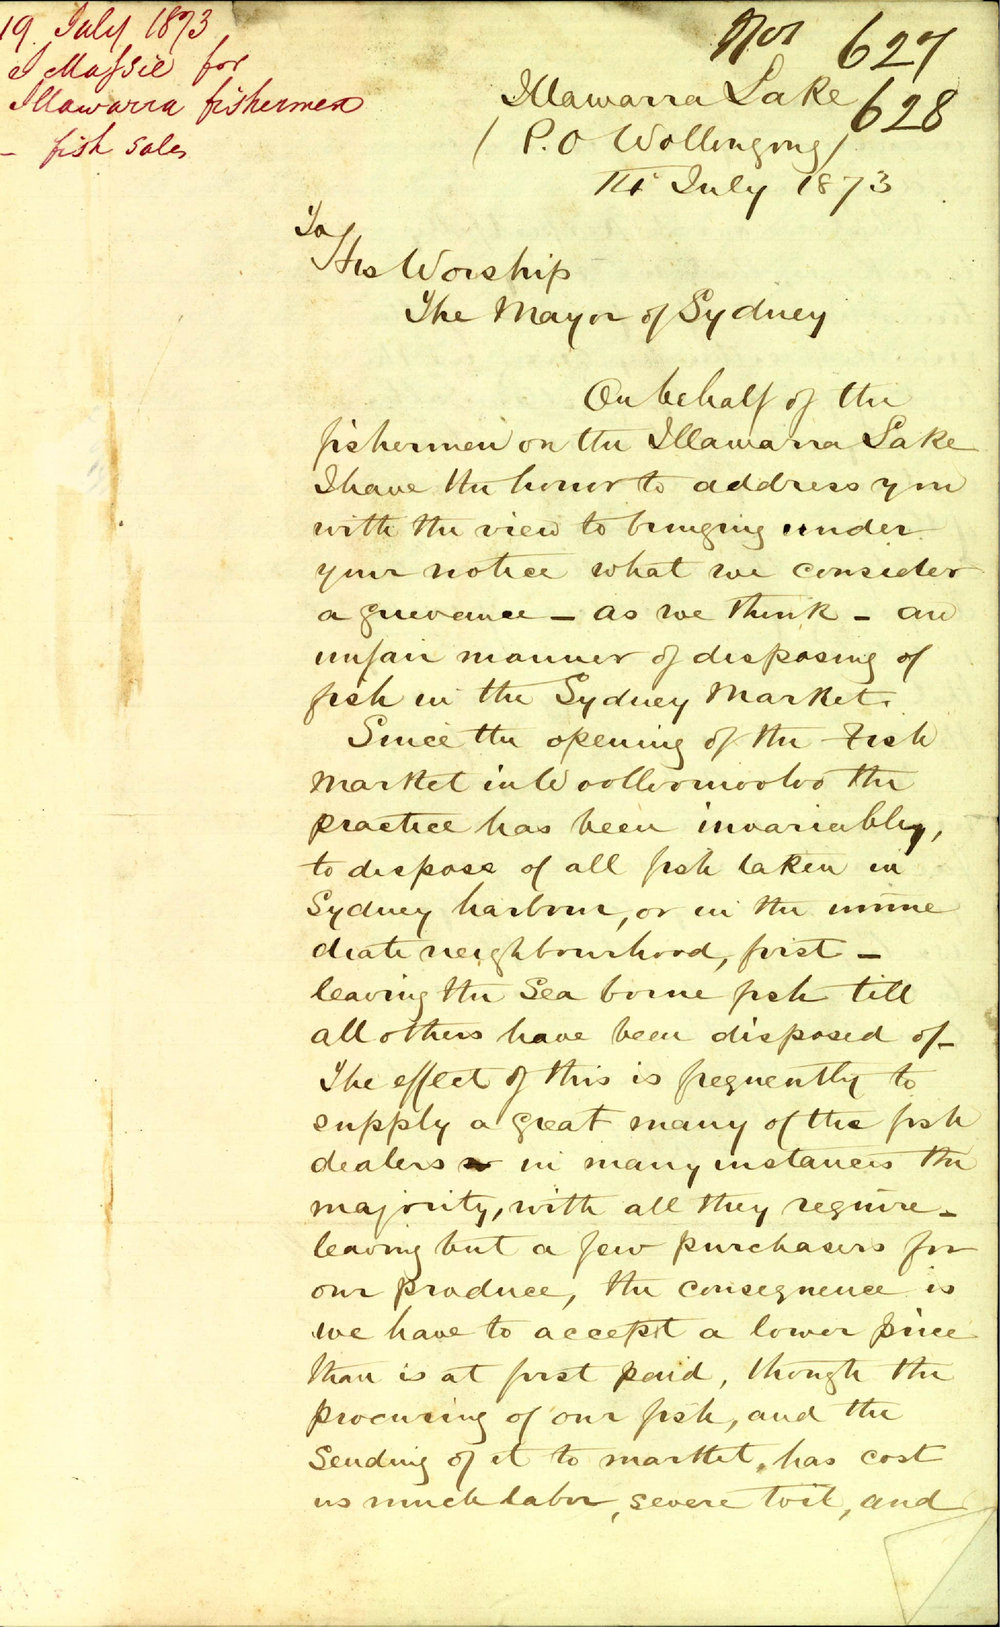 19 July 1873
J Massie for
Illawarra fishermen
- fish sales
Nos 627
628
Illawarra Lake
(P.O Wollongong)
July 1873
To
His Worship
The Mayor of Sydney
On behalf of the
fishermen on the Illawarra Lake
I have the honor to address you
with the view to bringing under
your notice what we consider
a grievance - as we think - an
unfair manner of disposing of
fish in the Sydney Market.
Since the opening of the Fish
Market in Woolloomooloo the
practice has been invariably,
to dispose of all fish taken in
Sydney harbour, or in the imme
diate neighbourhood, first -
leaving the Sea borne fish till
all others have been disposed of -
The effect of this is frequently to
supply a great many of the fish
dealers in many instances the
majority, with all they require -
leaving but a few purchasers for
our produce, the consequence is
we have to accept a lower price
than is at first paid, though the
procuring of our fish, and the
sending of it to market, has cost
us much labor, severe toil, and